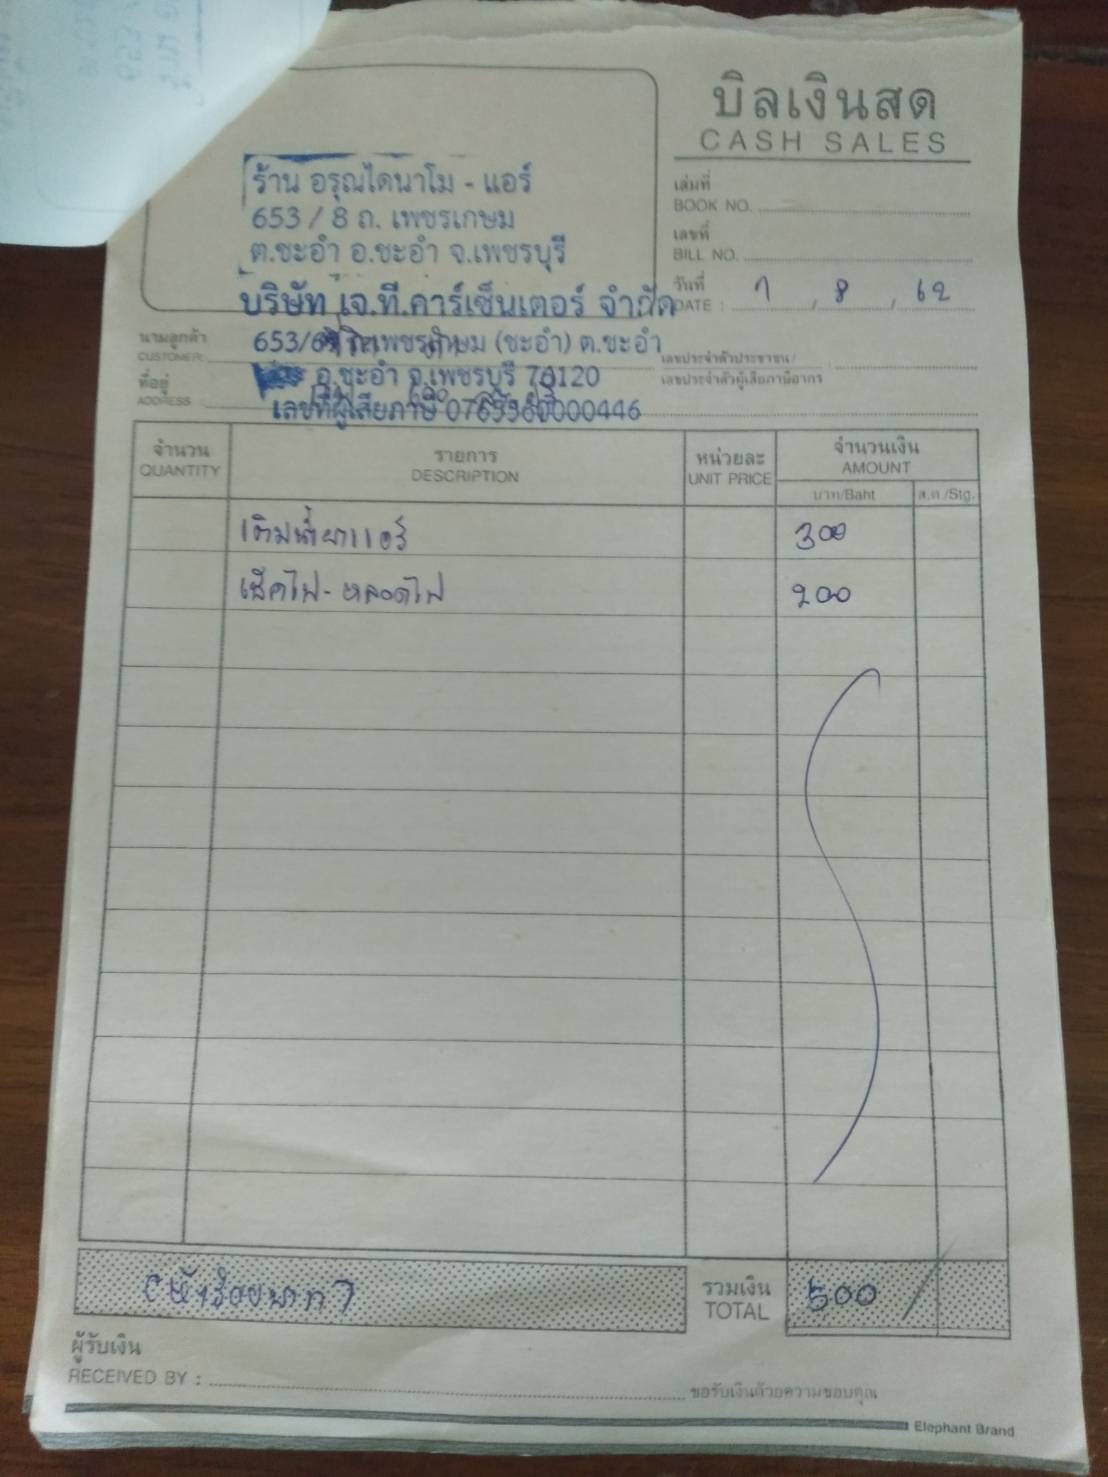 บิลเงินสด
CASH SALES
ร้าน อรุณไดนาโม - แอร์
653 / 8 ถ. เพชรเกษม
ต.ชะอำ อ.ชะอำ จ.เพชรบุรี
เล่มที่
BOOK NO.
เลขที่
BILL NO.
วันที่
DATE : 7 , 8 , 62
บริษัท เจ.ที.คาร์เซ็นเตอร์ จำกัด
นามลูกค้า
CUSTOMER:
653/6 เพชรเกษม (ชะอำ) ต.ชะอำ
เลขประจำตัวประชาชน/
เลขประจำตัวผู้เสียภาษีอากร
ที่อยู่
ADDRESS :
อ.ชะอำ จ.เพชรบุรี 76120
เลขที่ผู้เสียภาษี
จำนวน รายการ หน่วยละ จำนวนเงิน
QUANTITY DESCRIPTION UNIT PRICE AMOUNT
บาท/Baht ส.ต./Stg.
เติมน้ำยาแอร์ 300
เช็คไฟ - หลอดไฟ 200
(ห้าร้อยบาท) รวมเงิน 500
TOTAL
ผู้รับเงิน
RECEIVED BY :
ขอรับเงินด้วยความขอบคุณ
Elephant Brand